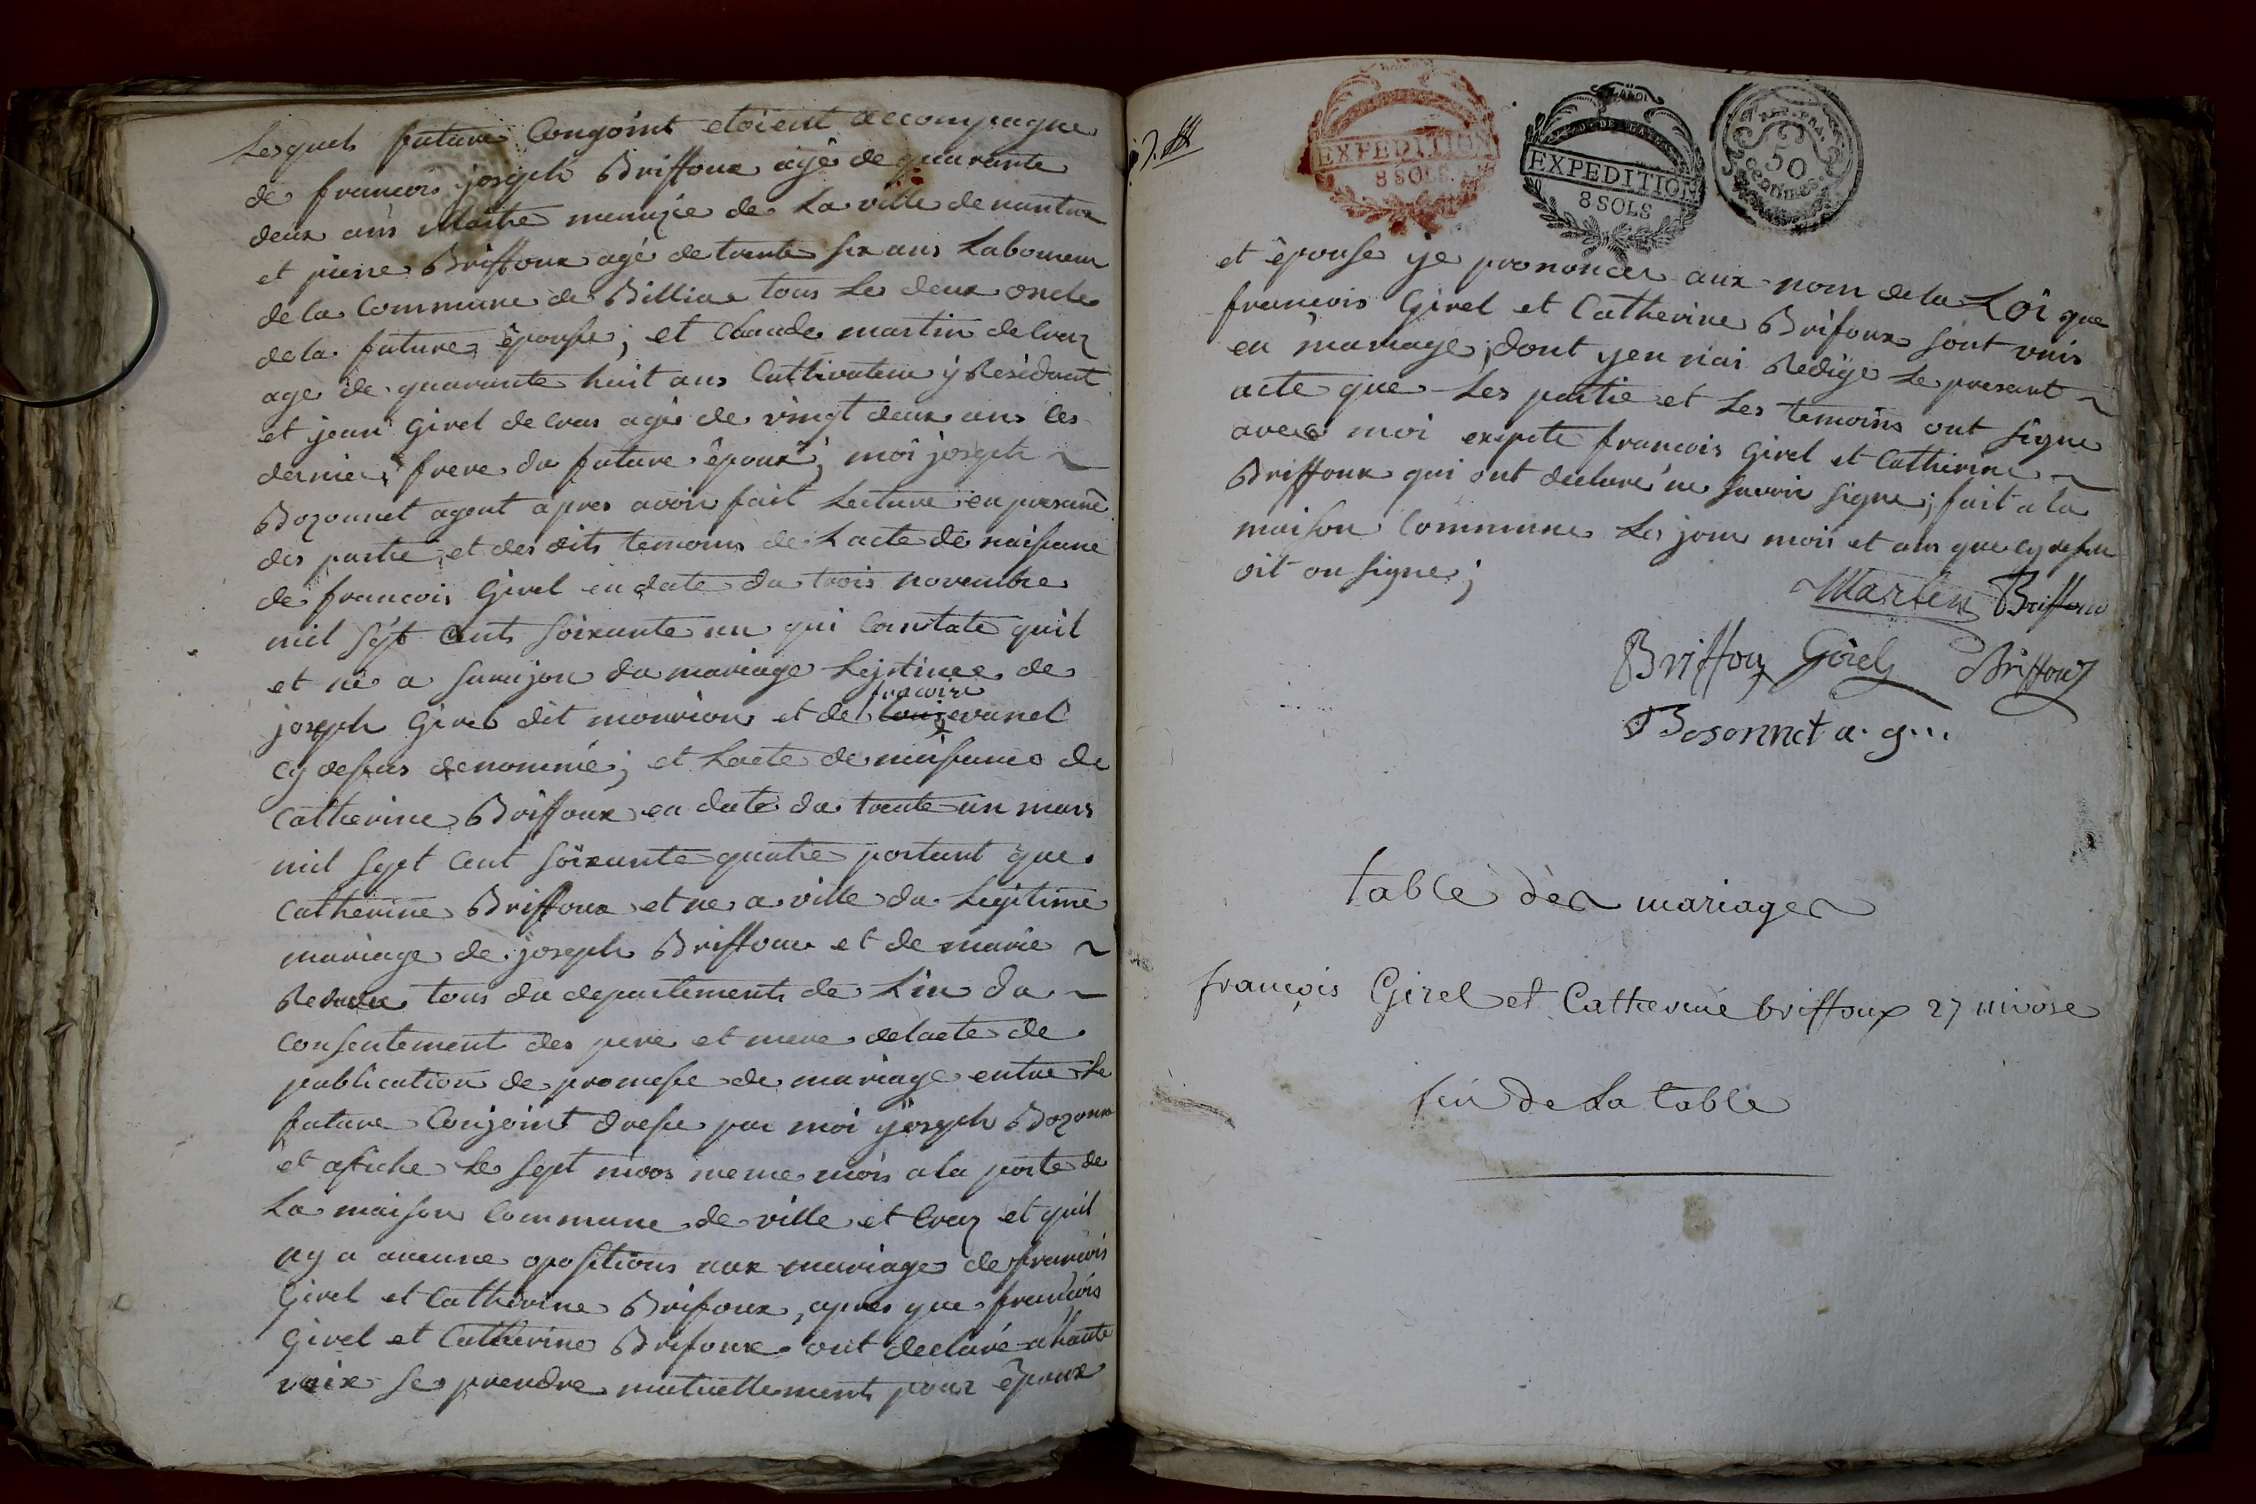 Lesquels future Congoint etoient accompagne
de francois joseph Briffoux agé de quarante
deux ans Maitre menuzie de La ville de nantua
et piere Briffoux agé de trente six ans Laboureur
de la Commune de Billia tous Les deux oncle
de la future épouse; et Claude martin de Craz
age de quarante huit ans Cultivateur ÿ Résidant
et jean Girel de Cras agé de vingt deux ans Ces
dernier frere du future époux; moi joseph ~
Bozonnet agent apres avoir fait Lecture en presance
des partie et des dits temoins de Lacte de naisance
de francois Girel en date du trois novembre
mil sept Cents soixante un qui Constate quil
et né a du mariage Lejitime de
joseph Girel dit mourion et de evanet
cy desus denommé; et Lacte de naisance de
Catherine Briffoux en date du trente un mars
mil sept Cent soixante quatre portant que
Catherine Briffoux et ne a ville du Legitime
mariage de joseph Briffoux et de marie ~
tous du departement de Lin du ~
Consentement des pere et mere de lacte de
publication de promese de mariage entre Le
future Conjoint dresse par moi joseph Bozonn
et afiche Le sept nivos meme mois a la porte de
La maison Commune de ville et Craz et quil
ny a aucune opositions aux mariage de francois
Girel et Catherine Brifoux, apres que francois
Girel et Catherine Brifoux ont declaré a haute
voix se prendre mutuellement pour époux
EXPEDITION
8 SOLS
EXPEDITION
8 SOLS
50
Centimes
et épouse je prononcer aux nom de la Loi que
francois Girel et Catherine Brifoux sont unis
en mariage; dont yen nai Redige Le presant ~
acte que Les partie et Les temoins ont signe
avec moi exepte francois Girel et Catherine ~
Briffoux qui ont declaré ne savoir signe; fait a la
maison Commune Les jour mois et ans que cy desu
oit on signe;
Martin Briffoux
Briffoux Girel Briffoux
Bosonnet a. g...
table des mariages
françois Girel et Catherine briffoux 27 nivose
fin de La table